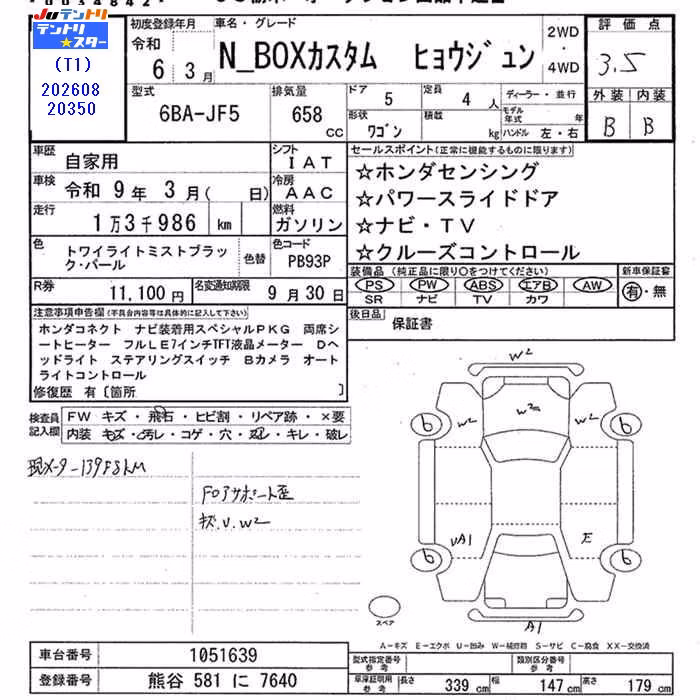 Juテントリ
テントリ★スター
(T1)
202608
20350
初度登録年月
令和
6 3月
車名・グレード
N_BOXカスタム ヒョウジュン
2WD
・
4WD
評価点
3.5
外装 内装
B B
型式
6BA-JF5
排気量
658
CC
ドア
5
定員
4 人
ディーラー・並行
形状
ワゴン
積載
kg
モデル年式
年
ハンドル 左・右
車歴
自家用
シフト
IAT
車検
令和 9年 3月( 日)
冷房
AAC
走行
1万3千986 km
燃料
ガソリン
色
トワイライトミストブラック・パール
色替
色コード
PB93P
R券
11,100円
名変通知期限
9月30日
セールスポイント(正常に機能するものに限ります)
☆ホンダセンシング
☆パワースライドドア
☆ナビ・TV
☆クルーズコントロール
装備品 (純正品に限り○をつけてください)
PS PW ABS エアB AW
SR ナビ TV カワ
新車保証書
有・無
後日品
保証書
注意事項申告欄(不具合内容等は具体的に記入して下さい)
ホンダコネクト ナビ装着用スペシャルPKG 両席シ
ートヒーター フルLE7インチTFT液晶メーター Dヘ
ッドライト ステアリングスイッチ Bカメラ オート
ライトコントロール
修復歴 有〔箇所 〕
検査員記入欄
FW キズ・飛石・ヒビ割・リペア跡・×要
内装 キズ・汚レ・コゲ・穴・スレ・キレ・破レ
現メーター13988KM
FDアウサポート歪
キズ.U.W2
W2
W2
W2
W2
6
6
UA1
E
6
6
A1
スペア
A−キズ E−エクボ U−凹み W−補修跡 S−サビ C−腐食 XX−交換済
車台番号
1051639
登録番号
熊谷 581 に 7640
型式指定番号
参考
類別区分番号
参考
車庫証明用
参考
長さ 339 cm
幅 147 cm
高さ 179 cm